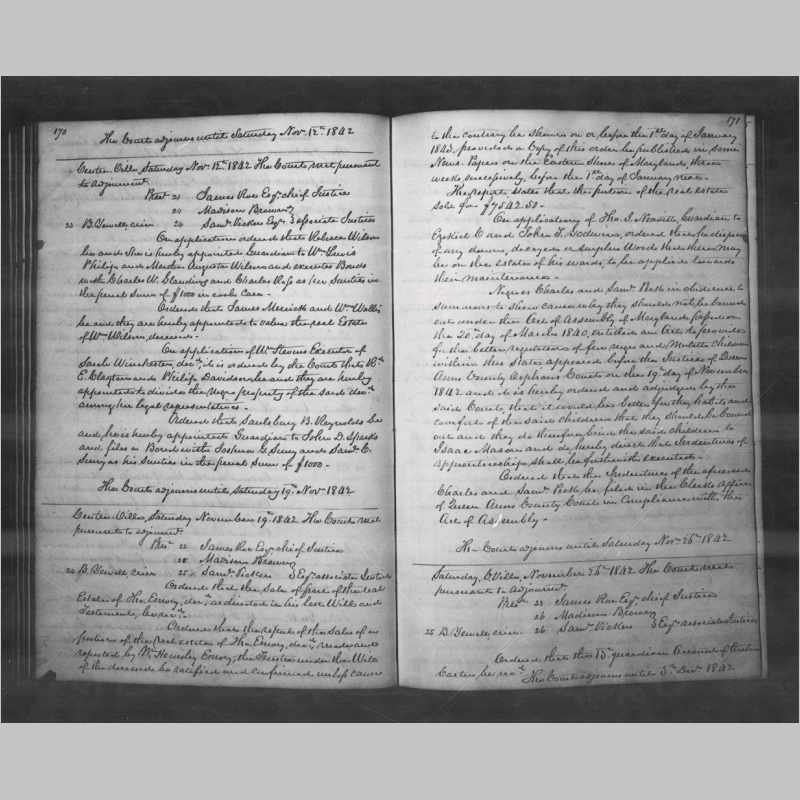 170
The Court adjourns until Saturday Nov. 12th 1842
Centre Ville, Saturday Nov. 12th 1842 The Court met pursuant
to adjournment.
Pres.t 23 James Roe Esqr. chief Justice
24 Madison Brown
23 B. Yewell, crier 24 Saml. Vickers Esqr. 3 associate Justices
On application ordered that Rebecca Wilson
be and She is hereby appointed Guardian to Wm. Lewis
Philip and Martin Augustus Wilson and executes Bonds
with Charles W. Glanding and Charles Ross as her Sureties in
the penal Sum of $1000 in each Case.
Ordered that James Merrick and Wm.
be and they are hereby appointed to value the real Estate
of Wm. Wilson, deceased.
On application of Wm. Stevens Executor of
Sarah Winchester, decd. it is ordered by the Court that
E. Clayton and Philip Davidson be and they are hereby
appointed to divide the negro property of the said decd.
among her legal representatives.
Ordered that Saulsbury B. Reynolds be
and he is hereby appointed Guardian to John D. Sparks
and files a Bond with G. Seney and Saml. E.
Seney as his Sureties in the penal Sum of $1000.
The Court adjourns until Saturday 19th Nov. 1842
Centre Ville, Saturday November 19th 1842. The Court met
pursuant to adjournmt.
Pres.t James Roe Esqr. chief Justice
Madison Brown
24 B. Yewell, crier 25 Saml. Vickers 3 Esqr. associate Justices
Ordered that the Sale of part of the real
Estate of Tho. Emory, decd. as directed in his last Will and
Testament, be recd.
Ordered that the report of the Sales of a
portion of the real estate of Tho. Emory, decd. made and
reported by Wm. Hemsley Emory, the Trustee under the Will
of the deceased be ratified and confirmed unless cause
171
to the contrary be shewn on or before the 1st day of January
1843, provided a Copy of this order be published in some
News Paper on the Eastern Shore of Maryland three
weeks successively, before the 1st day of January next.
The report states that the portion of the real estate
sold for $7542.50.
On application of Tho. J. Guardian to
Ezekiel C. and John T. Godwin, ordered that he dispose
of any down, decayed or surplus Wood that there may
be on the Estates of his wards, to be applied towards
their maintenance.
Negroes Charles and Saml. Peck in obedience to
summons to show cause why they should not be bound
out under the Act of Assembly of Maryland passed on
the 20th day of March 1840, entitled an Act to provide
for the better regulation of free negro and Mulatto Children
within this State appeared before the Justices of Queen
Anns County Orphans Court on the 19th day of November
1842 and it is hereby ordered and adjudged by the
said Court, that it would be better for the habits and
comfort of the said children that they should be bound
out and they do therefore bind the said children to
Isaac Mason and do hereby direct that Indentures of
apprenticeship shall be forthwith executed.
Ordered that the Indentures of the aforesaid
Charles and Saml. Peck be filed in the Clerks Office
of Queen Anns County Court in Compliance with the
Act of Assembly.
The Court adjourns until Saturday Nov. 26th 1842
Saturday, C. Ville, November 26th 1842 The Court met
pursuant to adjournmt.
Pres.t 25 James Roe Esqr. chief Justice
26 Madison Brown
25 B. Yewell, crier 26 Saml. Vickers 3 Esqr. associate Justices
Ordered that the 15th guardian Account of
Carter, be recd. The Court adjourns until 3rd Dec. 1842